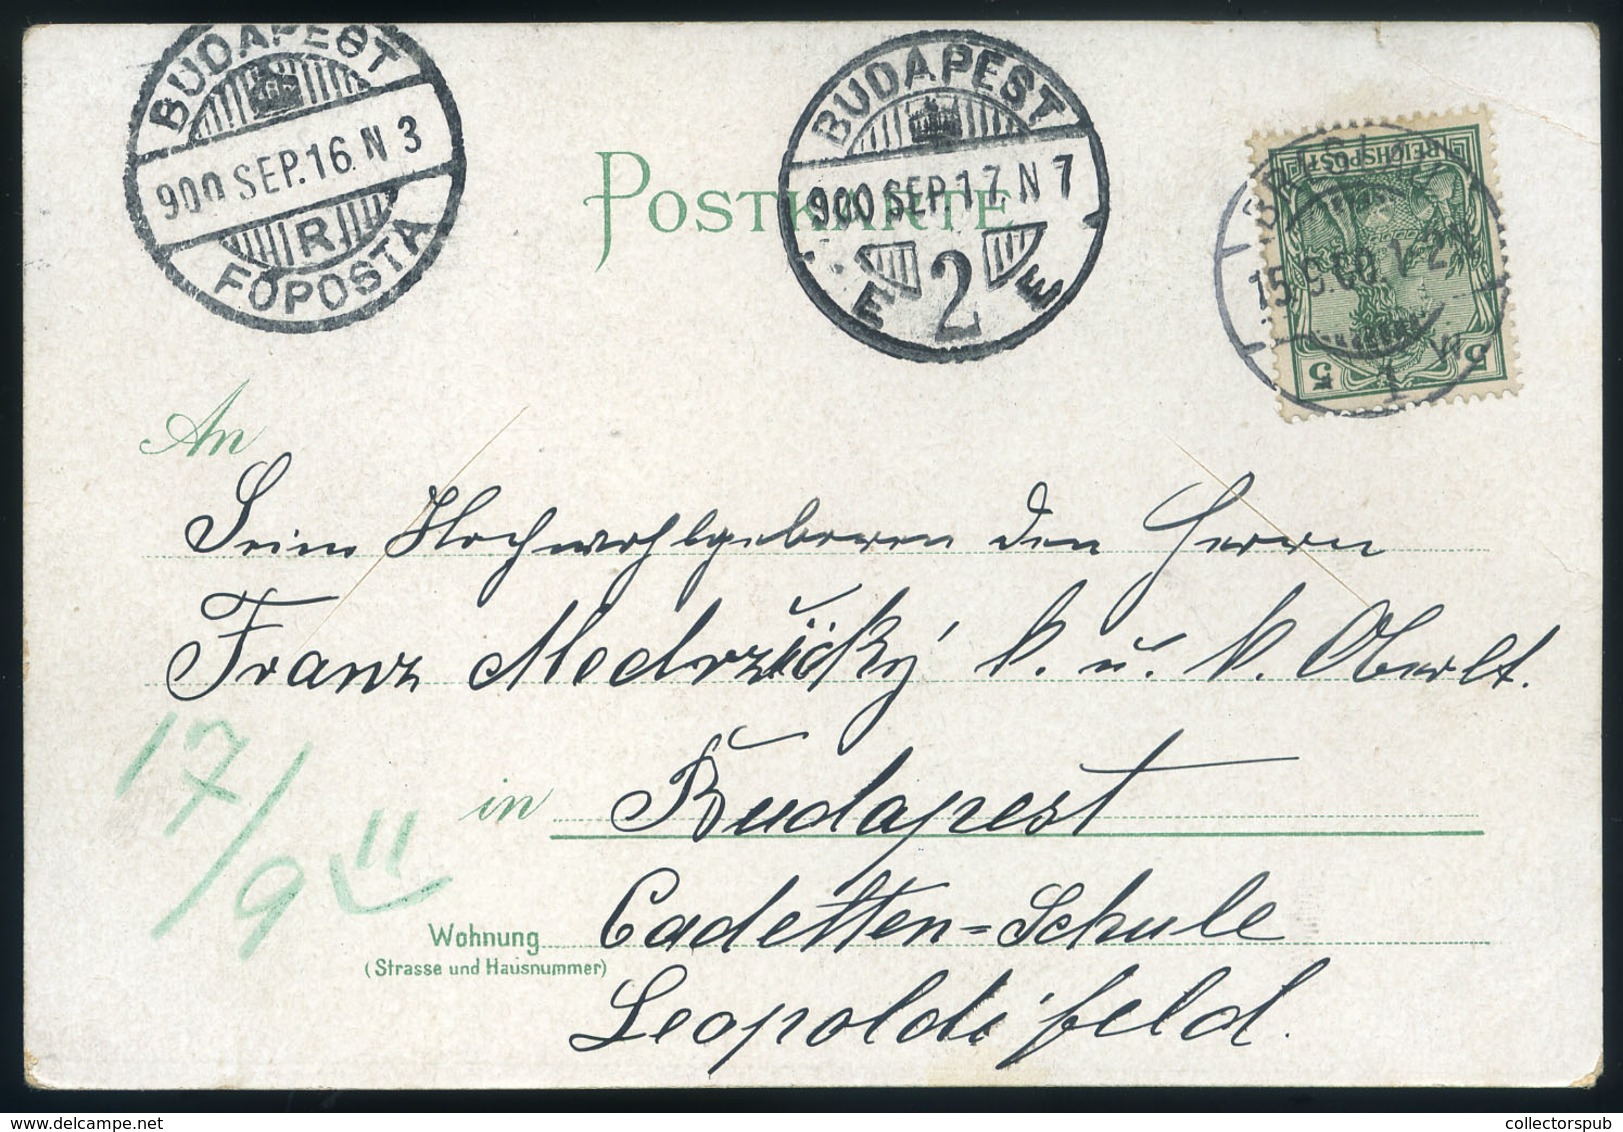 BUDAPEST
900 SEP. 16. N 3
R.
FŐPOSTA
POSTKARTE
BUDAPEST
900 SEP. 17. N 7
E 2 E
REICHSPOST
15.9.00. 1-2N.
5 5
1
An
Seine Hochwohlgeboren den Herrn
Franz Modrzický k. u. k. Oberlt.
17/9 11
in Budapest
Wohnung Cadetten-Schule
(Strasse und Hausnummer)
Leopoldifeld.
collectorspub